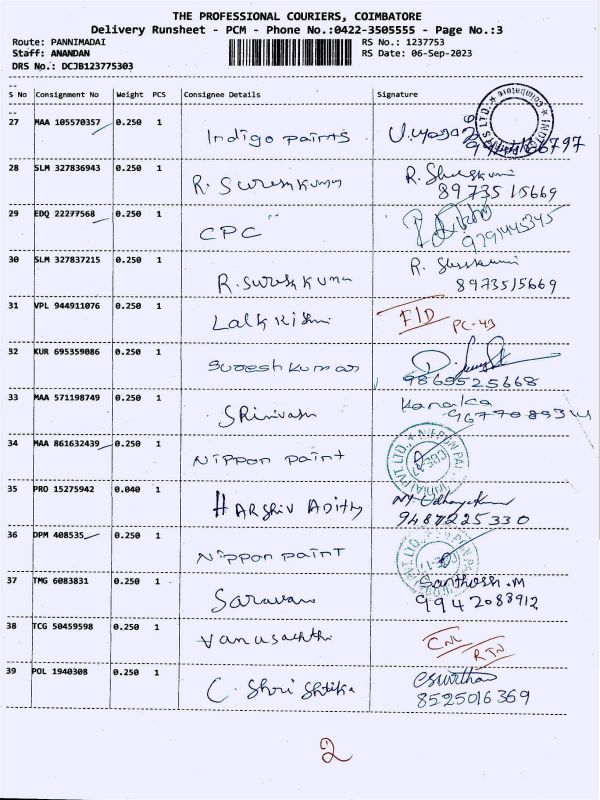 THE PROFESSIONAL COURIERS, COIMBATORE
Delivery Runsheet - PCM - Phone No.:0422-3505555 - Page No.:3
Route: PANNIMADAI RS No.: 1237753
Staff: ANANDAN RS Date: 06-Sep-2023
DRS No.: DCJB123775303
S No Consignment No Weight PCS Consignee Details Signature
27 MAA 105570357 0.250 1 Indigo paints
28 SLM 327836943 0.250 1 R. Sureshkumar R.
8973515669
29 EDQ 22277568 0.250 1 CPC
30 SLM 327837215 0.250 1 R. Sureshkumar R.
8973515669
31 VPL 944911076 0.250 1 F/D
PC-43
32 KUR 695359086 0.250 1 Suresh Kumar
9865525668
33 MAA 571198749 0.250 1 Srinivasan Kanaka
34 MAA 861632439 0.250 1 Nippon paint
35 PRO 15275942 0.040 1
9487225330
36 DPM 408535 0.250 1 Nippon paint
37 TMG 6083831 0.250 1 Saravan Santhosh.M
9942088912
38 TCG 50459598 0.250 1 CNL
RTN
39 POL 1940308 0.250 1 C. Shri Shtika
8525016369
2